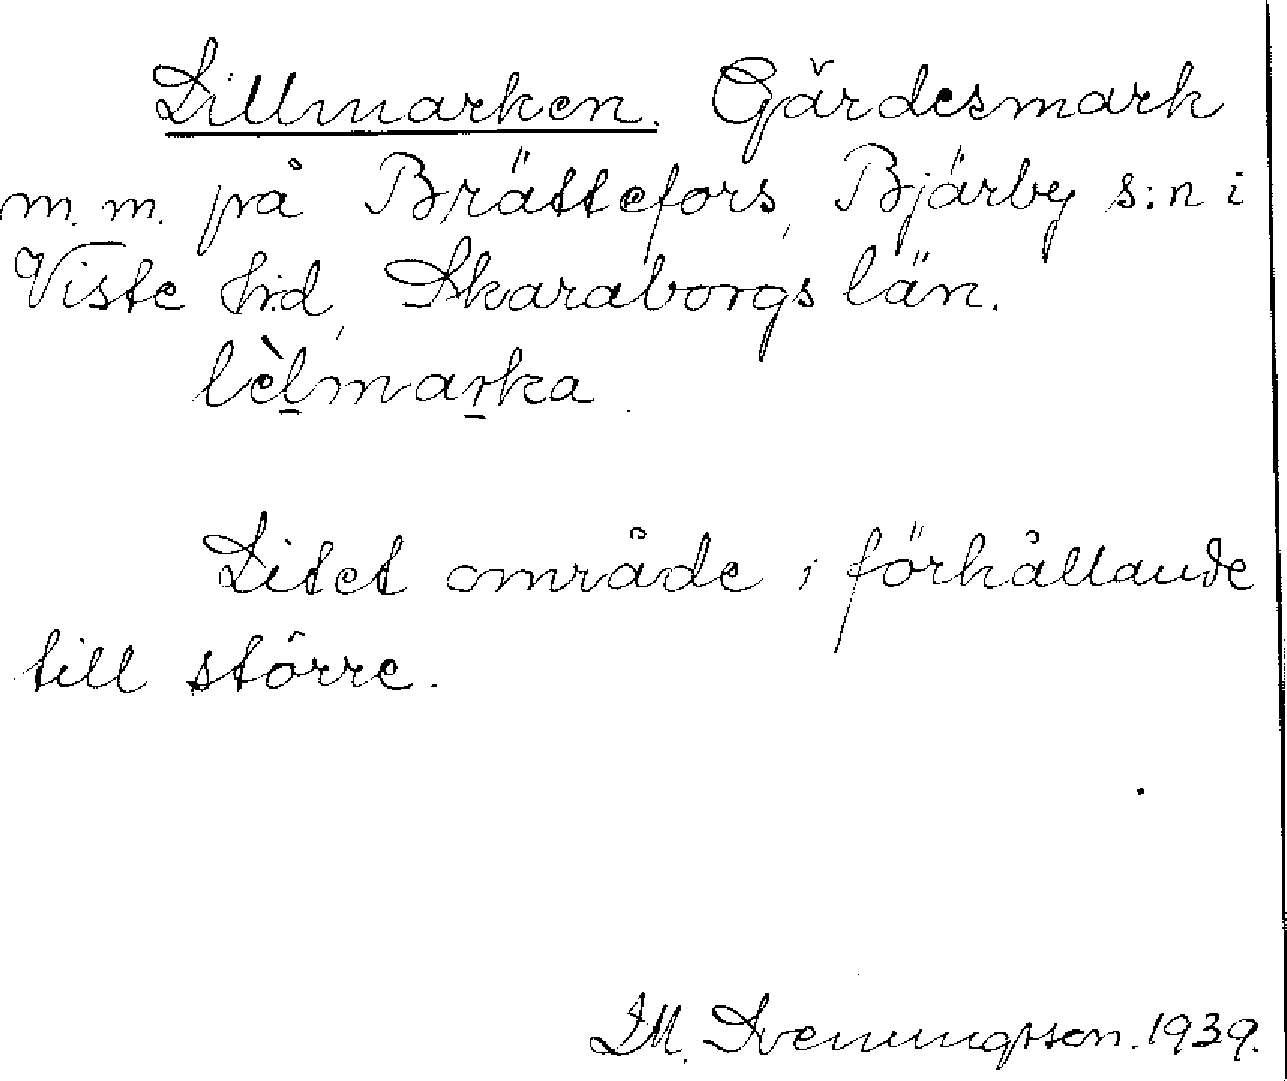 Lillmarken. Gärdesmark
m.m. på Brättefors, Bjärby s:n i
Viste hd, Skaraborgs län.
lèl̠mar̠ka.
Litet område i förhållande
till större.
Svenungsson. 1939.